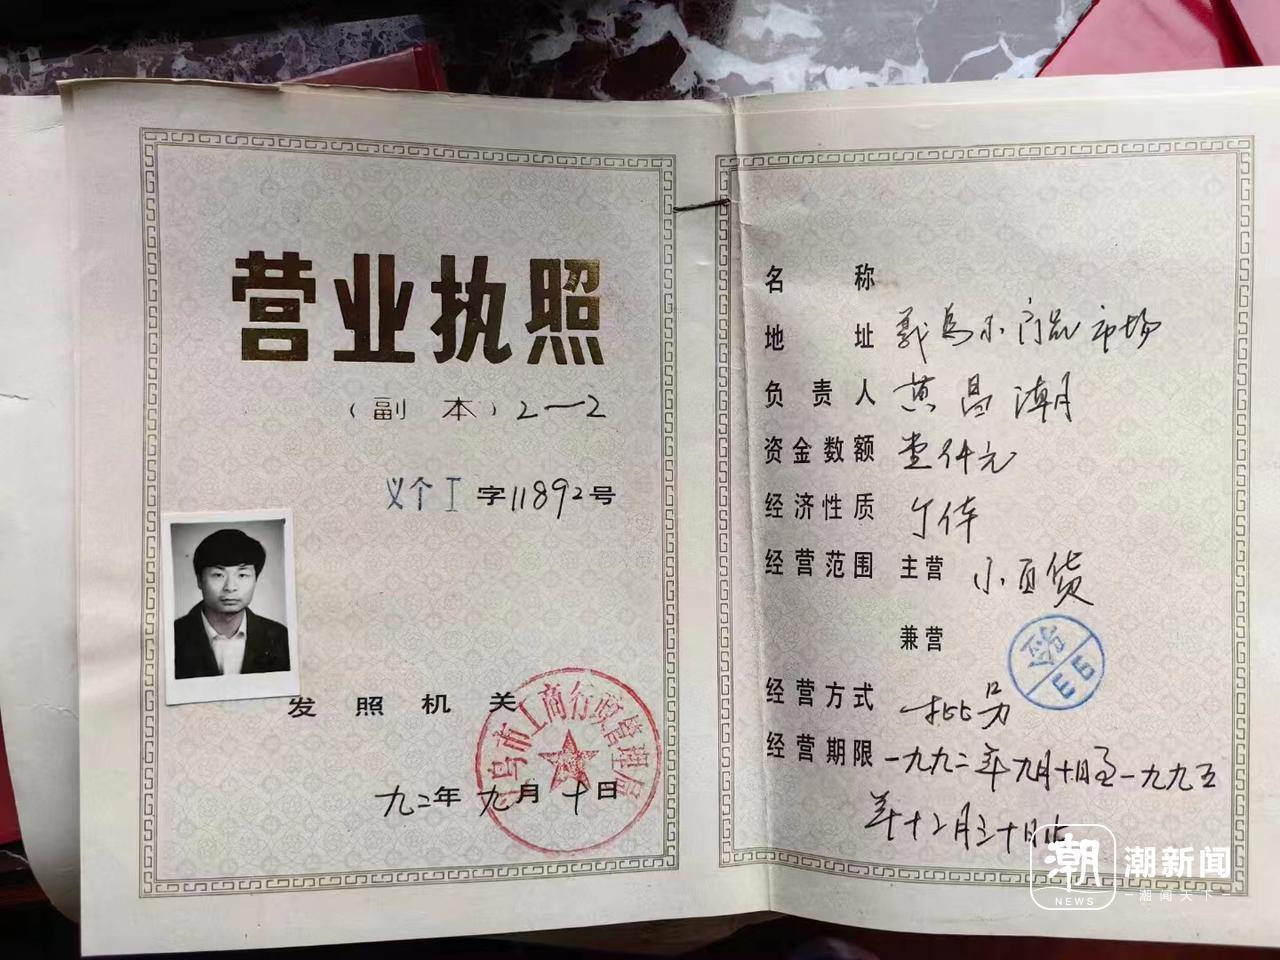 营业执照
（副 本）2—2
义个工字11892号
发照机关
义乌市工商行政管理局
九二年九月十日
名 称
地 址 义乌小商品市场
负责人 黄昌潮
资金数额 壹仟元
经济性质 个体
经营范围 主营 小百货
兼营
经营方式 批另
经营期限 一九九二年九月十日至一九九五
年十二月三十日止
潮
NEWS
潮新闻
潮闻天下